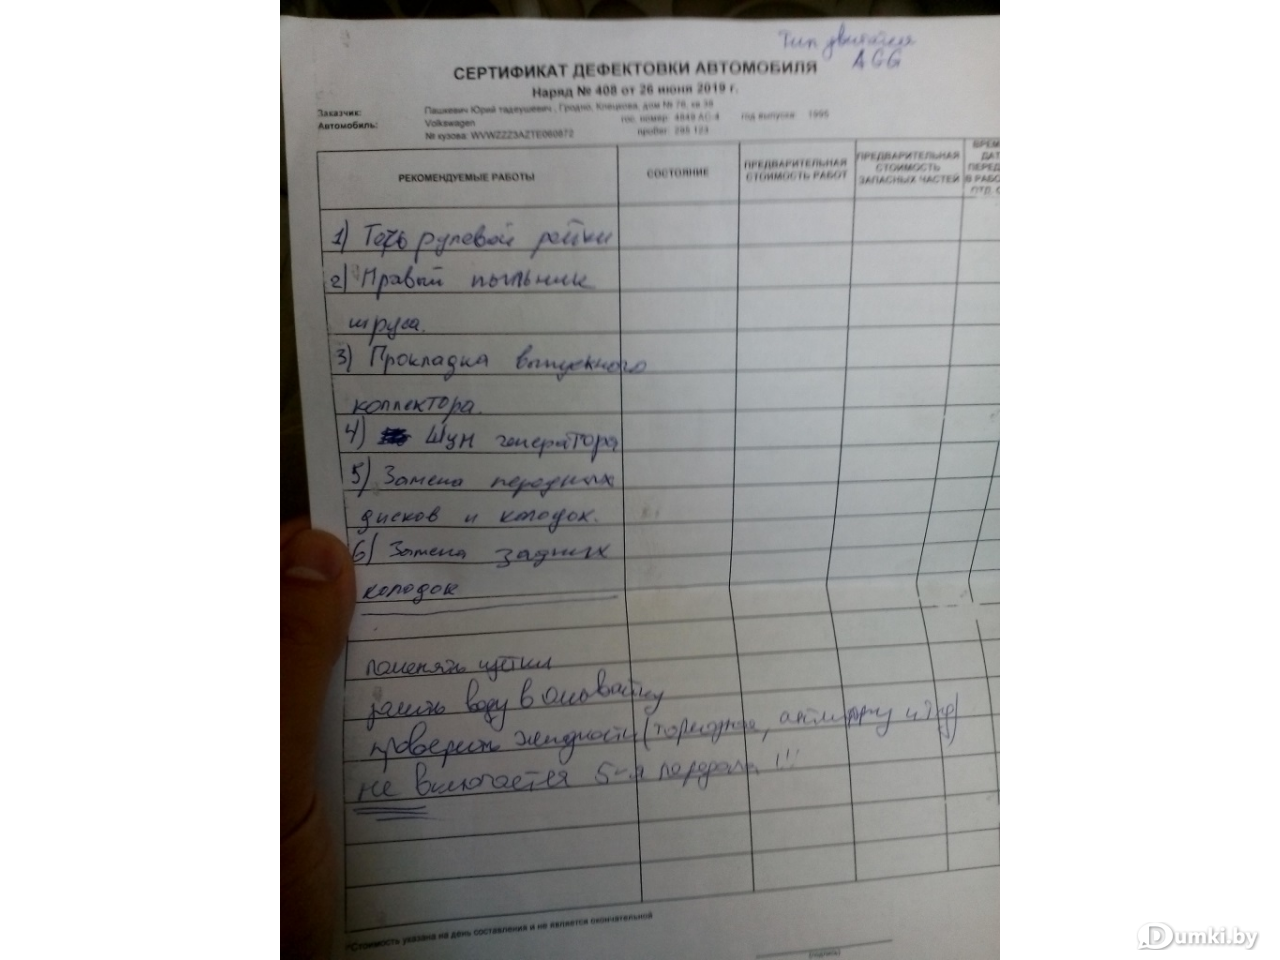 Тип двигателя
AGG
СЕРТИФИКАТ ДЕФЕКТОВКИ АВТОМОБИЛЯ
Наряд № 408 от 26 июня 2019 г.
Заказчик: Пашкевич Юрий тадеушевич, Гродно, Клецкова, дом № 76, кв 38
Автомобиль: Volkswagen гос. номер: 4849 AC-4 год выпуска 1995
№ кузова: WVWZZZ3AZTE060872 пробег: 295 123
РЕКОМЕНДУЕМЫЕ РАБОТЫ
СОСТОЯНИЕ
ПРЕДВАРИТЕЛЬНАЯ
СТОИМОСТЬ РАБОТ
ПРЕДВАРИТЕЛЬНАЯ
СТОИМОСТЬ
ЗАПАСНЫХ ЧАСТЕЙ
ВРЕМ
ДАТ
ПЕРЕД
В РАБО
ОТД. С
1) Течь рулевой рейки
2) Правый пыльник
шруса.
3) Прокладка выпускного
коллектора.
4) Шум генератора
5) Замена передних
дисков и колодок.
6) Замена задних
колодок
поменять щётки
залить воду в омывайку
проверить жидкости (тормозная, антифриз и т.д)
не включается 5-я передача !!!
*Стоимость указана на день составления и не является окончательной
(подпись)
Dumki.by